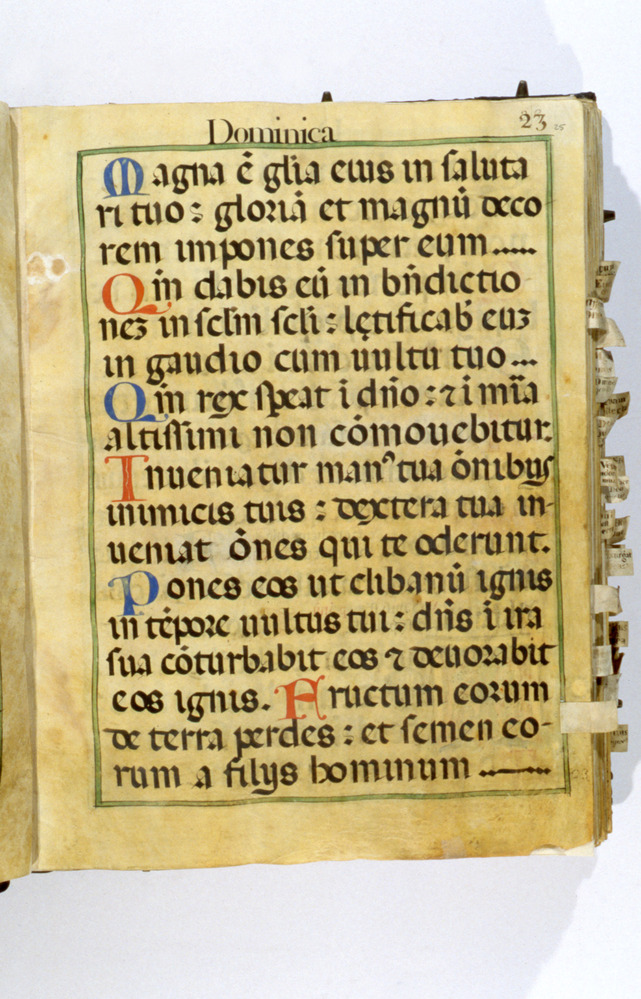 Dominica 23
Magna ē gl̄ia eius in saluta
ri tuo: gloriā et magnū deco
rem impones super eum.....
Qm̄ dabis eū in bn̄dictio
neʒ in sclm̄ scl̄i: lętificab̄ euʒ
in gaudio cum uultu tuo...
Qm̄ rex speat ī dn̄o: ⁊ ī mīa
altissimi non cōmouebitur.
Inueniatur manꝰ tua ōnibus
inimicis tuis: dextera tua in-
ueniat ōnes qui te oderunt.
Pones eos ut clibanū ignis
in tēpore uultus tui: dn̄s ī ira
sua cōturbabit eos ⁊ deuorabit
eos ignis. Fructum eorum
de terra perdes: et semen eo-
rum a filijs hominum